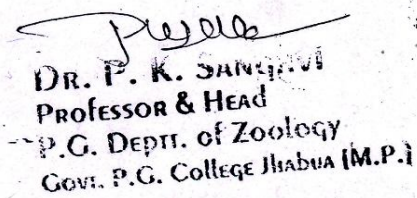 DR. P. K. SANGHVI
PROFESSOR & HEAD
P.G. DEPTT. of Zoology
GOVT. P.G. COLLEGE JHABUA (M.P.)